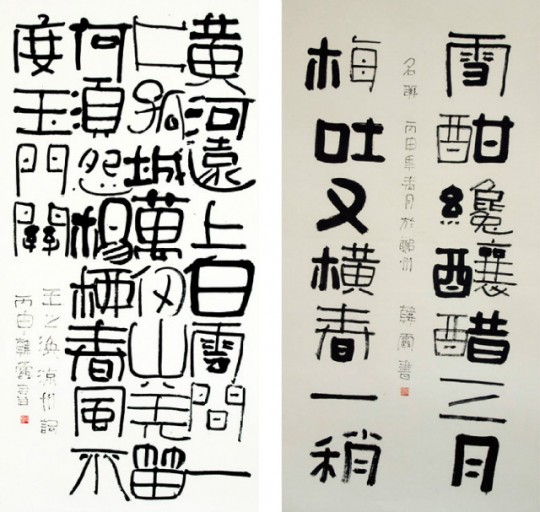 黄河遠上白雲間一
片孤城萬仞山羌笛
何須怨楊柳春風不
度玉門關
王之渙涼州詞
丙申韓霽書
雪酣纔釀醋三月
梅吐又橫春一稍
名联 丙申年春月於鄭州 韓霽書